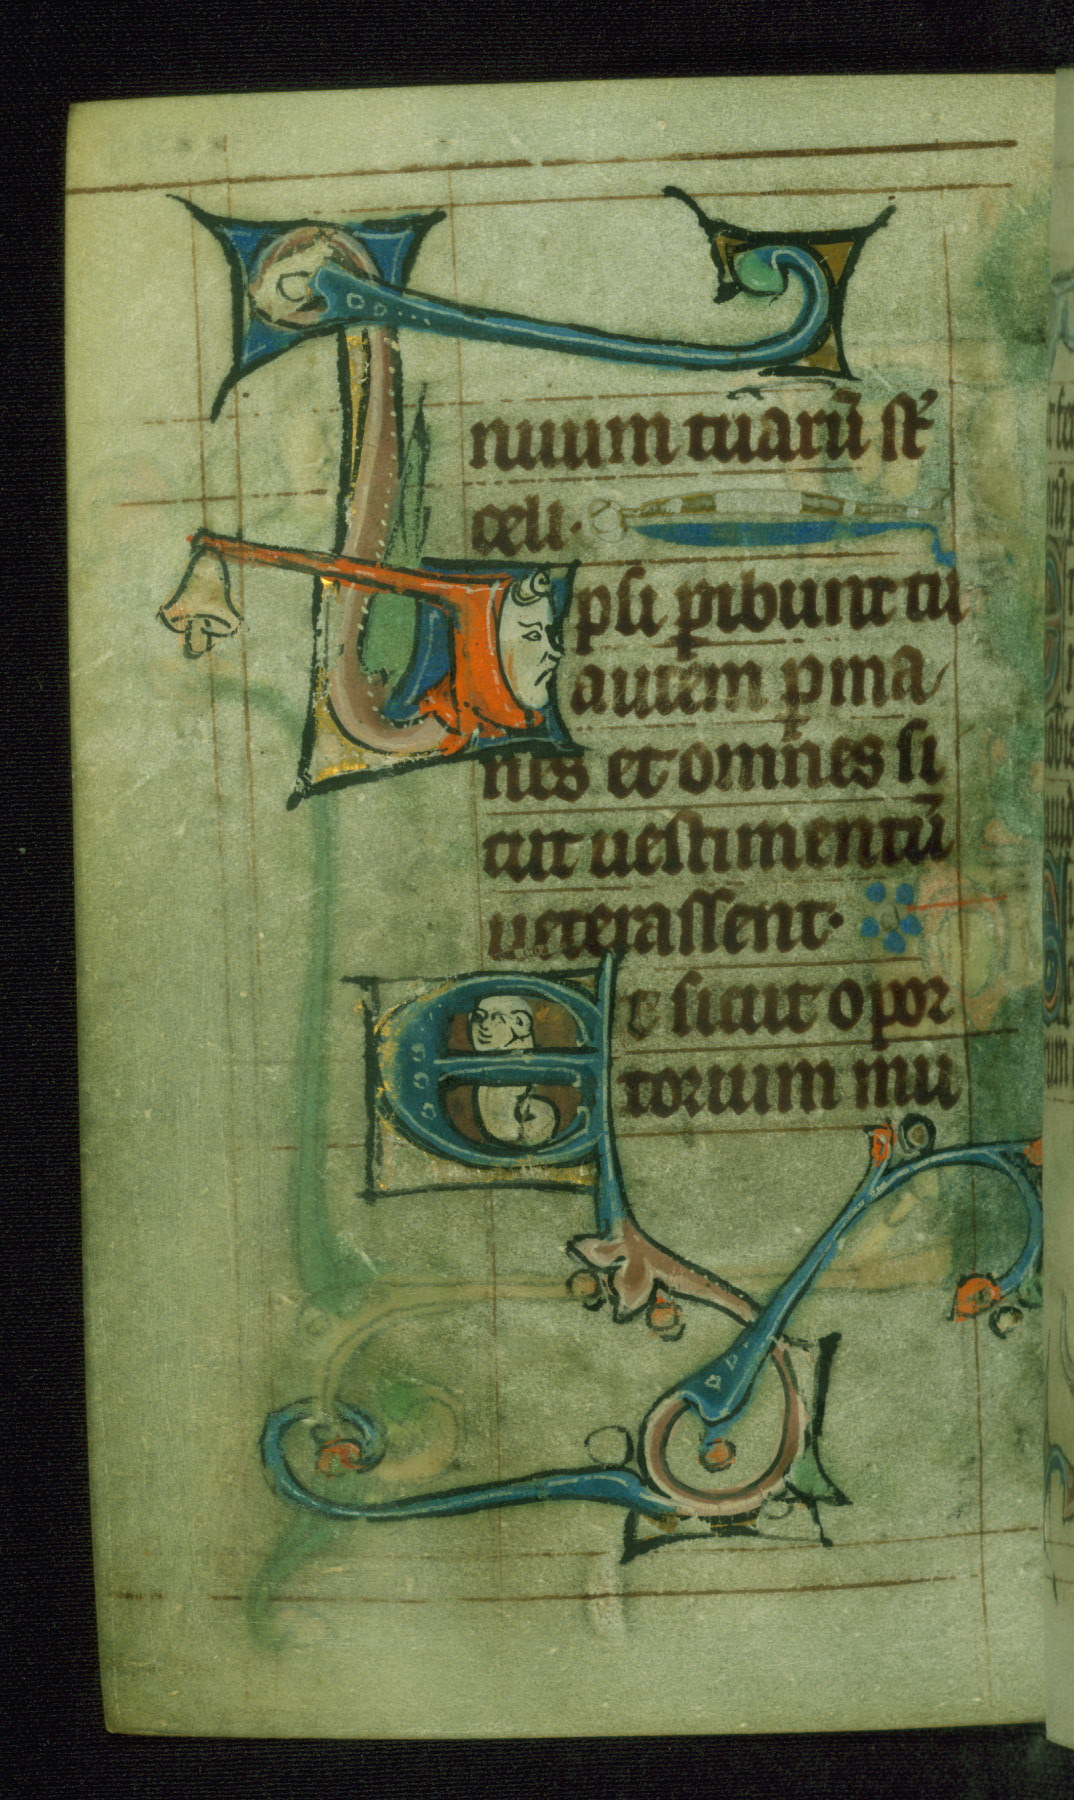 nuum tuarū sт̄
celi.
Ipsi ꝑibunt tu
autem ꝑma
nes et omnes si
cut uestimentū
ueterassent.
Et sicut opor
torium mu